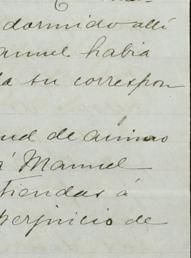 dormido allí
anuel habia
la su correspon
ud de animo
á Manuel
tiendas á
perjuicio de